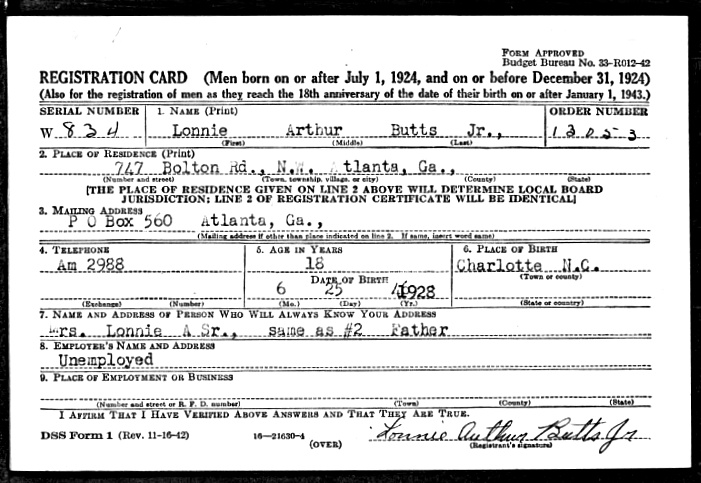 FORM APPROVED
Budget Bureau No. 33-R012-42
REGISTRATION CARD (Men born on or after July 1, 1924, and on or before December 31, 1924)
(Also for the registration of men as they reach the 18th anniversary of the date of their birth on or after January 1, 1943.)
SERIAL NUMBER 1. NAME (Print) ORDER NUMBER
W 834 Lonnie Arthur Butts Jr., 13053
(First) (Middle) (Last)
2. PLACE OF RESIDENCE (Print)
747 Bolton Rd., N.W. Atlanta, Ga.,
(Number and street) (Town, township, village, or city) (County) (State)
[THE PLACE OF RESIDENCE GIVEN ON LINE 2 ABOVE WILL DETERMINE LOCAL BOARD
JURISDICTION; LINE 2 OF REGISTRATION CERTIFICATE WILL BE IDENTICAL]
3. MAILING ADDRESS
P O Box 560 Atlanta, Ga.,
(Mailing address if other than place indicated on line 2. If same, insert word same)
4. TELEPHONE 5. AGE IN YEARS 6. PLACE OF BIRTH
Am 2988 18 Charlotte N.C.
DATE OF BIRTH (Town or county)
6 25 1928
(Exchange) (Number) (Mo.) (Day) (Yr.) (State or country)
7. NAME AND ADDRESS OF PERSON WHO WILL ALWAYS KNOW YOUR ADDRESS
Mrs. Lonnie A Sr., same as #2 Father
8. EMPLOYER'S NAME AND ADDRESS
Unemployed
9. PLACE OF EMPLOYMENT OR BUSINESS
(Number and street or R. F. D. number) (Town) (County) (State)
I AFFIRM THAT I HAVE VERIFIED ABOVE ANSWERS AND THAT THEY ARE TRUE.
DSS Form 1 (Rev. 11-16-42) 16—21630-4 Lonnie Arthur Butts Jr
(OVER) (Registrant's signature)